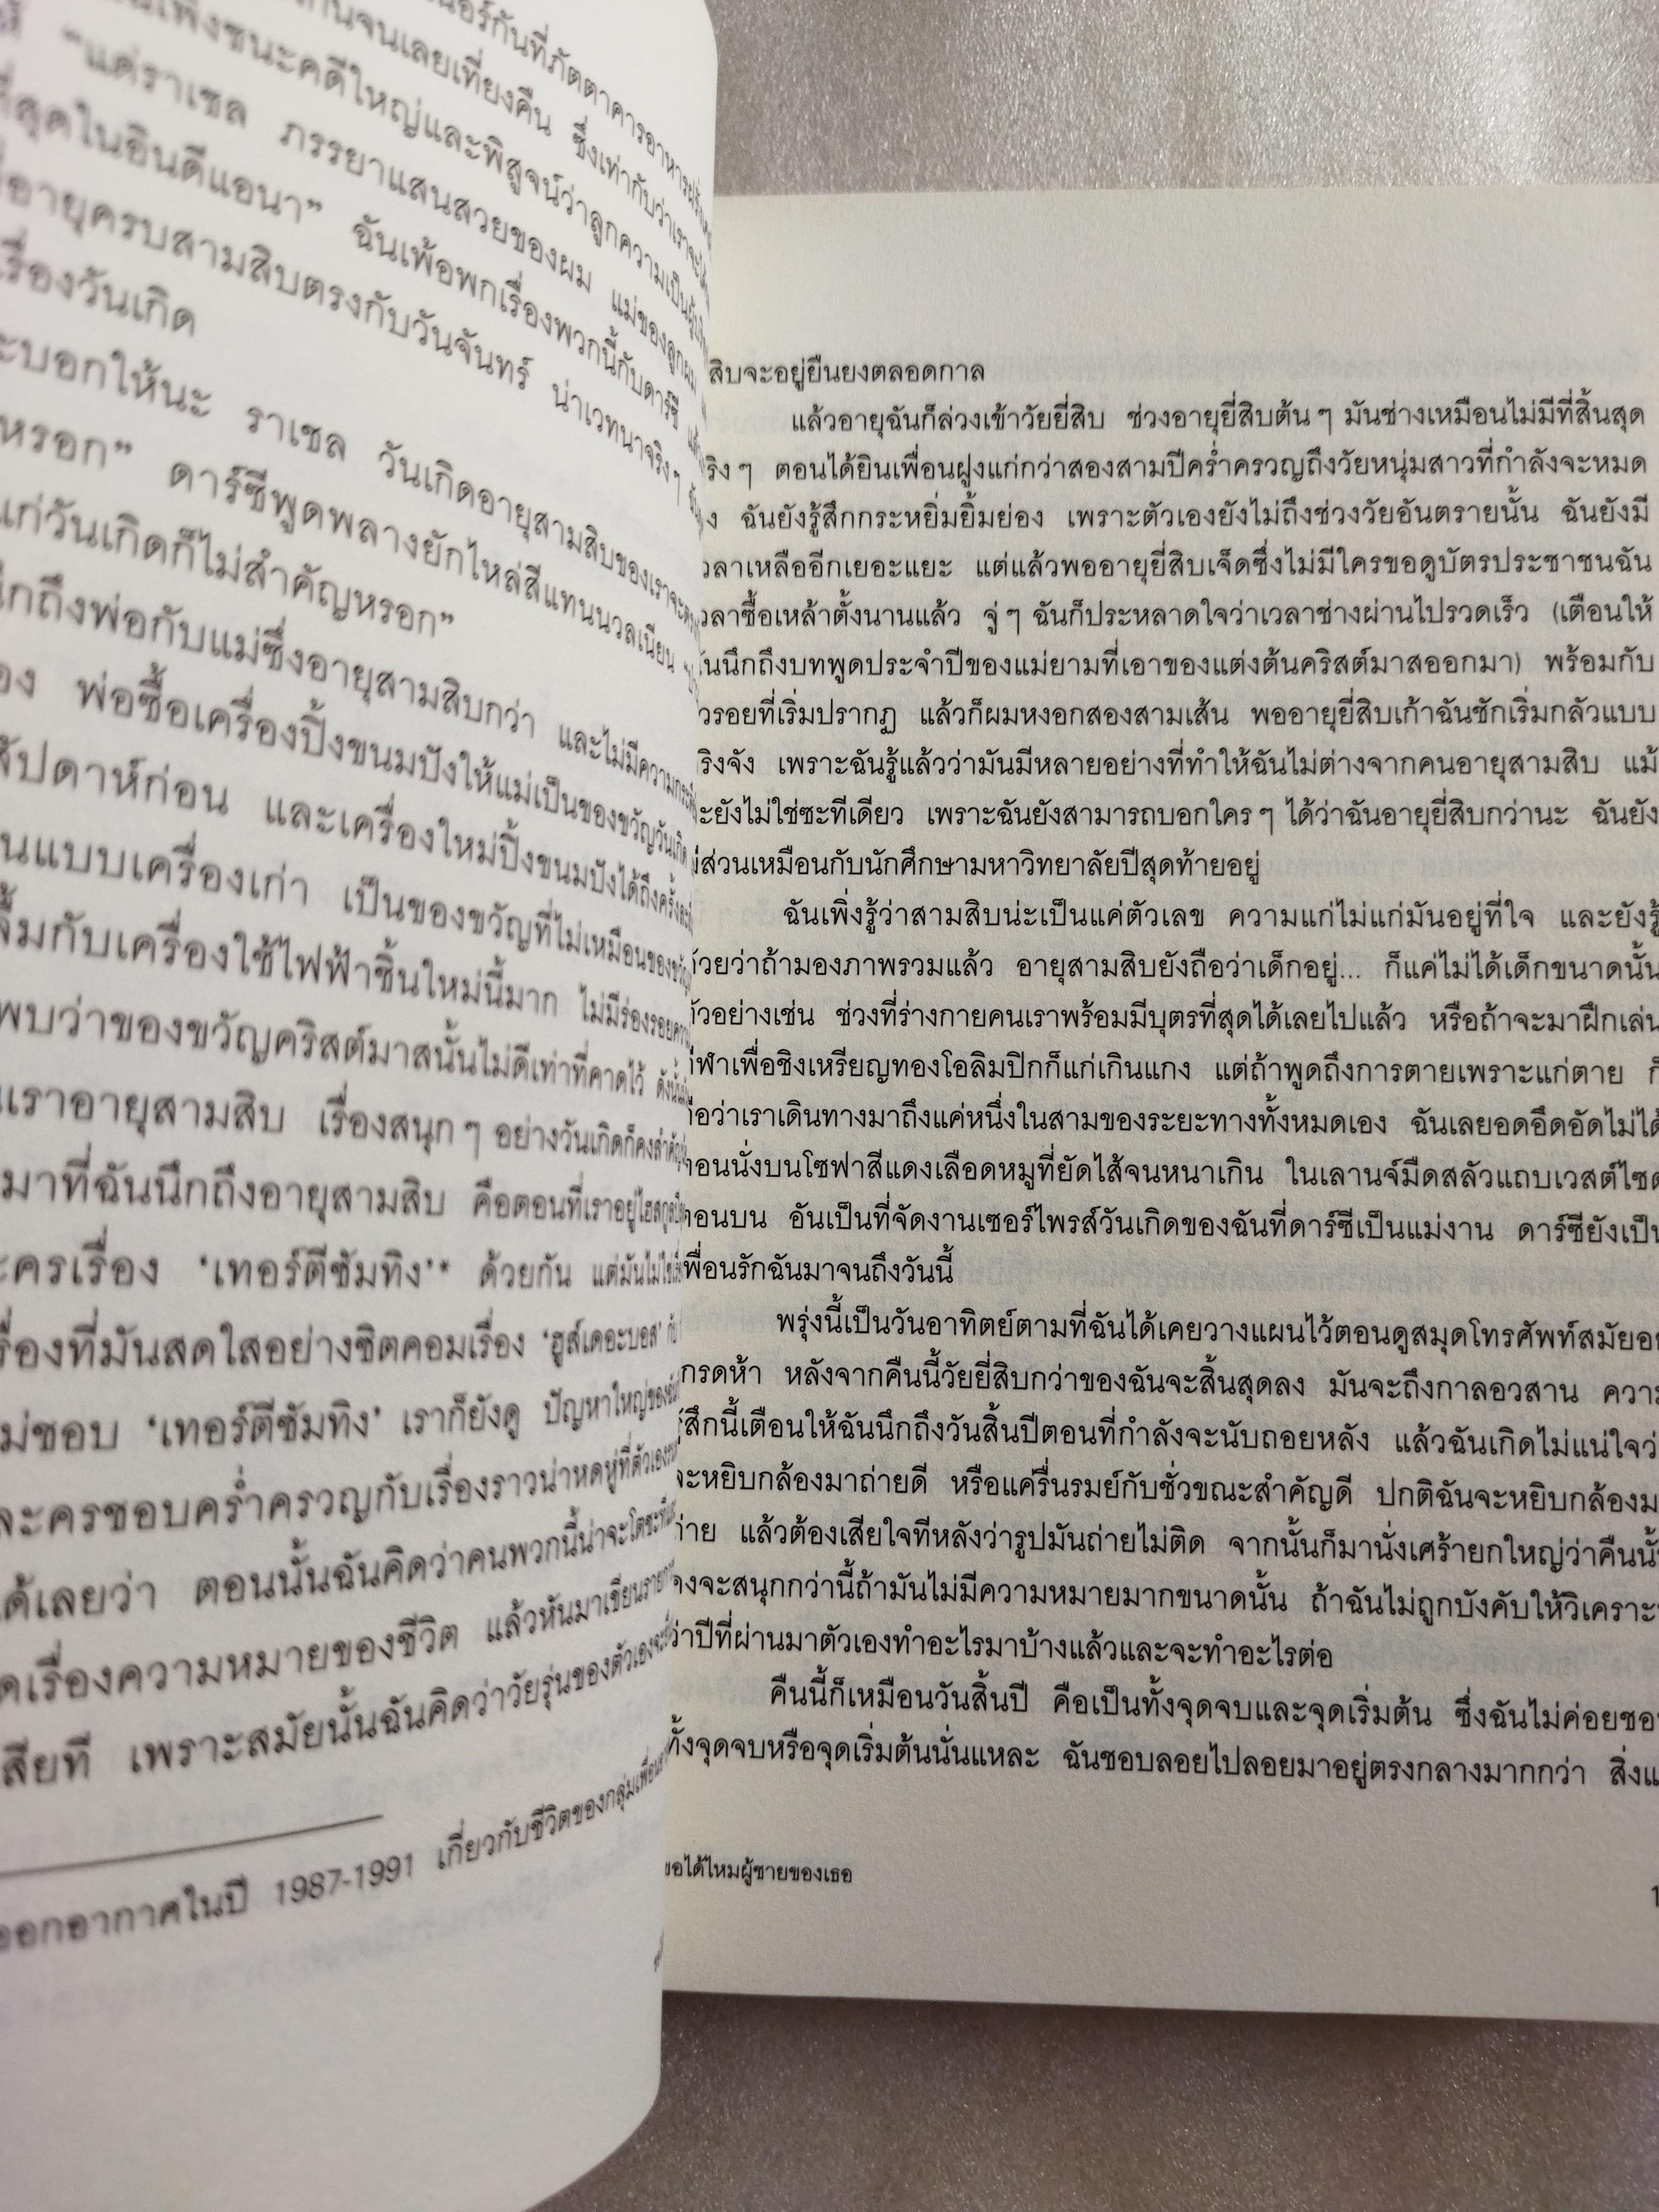 ที่ภัตตาคารอาหาร
จนเลยเที่ยงคืน ซึ่งเท่ากับว่าเราจะ
เพิ่งชนะคดีใหญ่และพิสูจน์ว่าลูกความเป็น
“แค่ราเชล ภรรยาแสนสวยของผม แม่ของลูกผม
ที่สุดในอินดีแอนา” ฉันเพ้อพกเรื่องพวกนี้กับดาร์ซี
อายุครบสามสิบตรงกับวันจันทร์ น่าเวทนาจริงๆ
เรื่องวันเกิด
บอกให้นะ ราเชล วันเกิดอายุสามสิบของเราจะ
หรอก” ดาร์ซีพูดพลางยักไหล่สีแทนนวลเนียน
แก่วันเกิดก็ไม่สำคัญหรอก”
นึกถึงพ่อกับแม่ซึ่งอายุสามสิบกว่า และไม่มีความ
พ่อซื้อเครื่องปิ้งขนมปังให้แม่เป็นของขวัญวันเกิด
สัปดาห์ก่อน และเครื่องใหม่ปิ้งขนมปังได้ถึงครั้งละ
แบบเครื่องเก่า เป็นของขวัญที่ไม่เหมือนของขวัญ
กับเครื่องใช้ไฟฟ้าชิ้นใหม่นี้มาก ไม่มีร่องรอย
พบว่าของขวัญคริสต์มาสนั้นไม่ดีเท่าที่คาดไว้ ดังนั้น
เราอายุสามสิบ เรื่องสนุกๆ อย่างวันเกิดก็คงสำคัญ
มาที่ฉันนึกถึงอายุสามสิบ คือตอนที่เราอยู่ไฮสกูล
ละครเรื่อง ‘เทอร์ตีซัมทิง’* ด้วยกัน แต่มันไม่ใช่
เรื่องที่มันสดใสอย่างซิตคอมเรื่อง ‘ฮูส์เดอะบอส’ กับ
ไม่ชอบ ‘เทอร์ตีซัมทิง’ เราก็ยังดู ปัญหาใหญ่ของ
ละครชอบคร่ำครวญกับเรื่องราวน่าหดหู่ที่ตัวเอง
ได้เลยว่า ตอนนั้นฉันคิดว่าคนพวกนี้น่าจะโตซะที
เรื่องความหมายของชีวิต แล้วหันมาเขียนราย
เสียที เพราะสมัยนั้นฉันคิดว่าวัยรุ่นของตัวเองจะ
ออกอากาศในปี 1987-1991 เกี่ยวกับชีวิตของกลุ่มเพื่อน
สิบจะอยู่ยืนยงตลอดกาล
แล้วอายุฉันก็ล่วงเข้าวัยยี่สิบ ช่วงอายุยี่สิบต้นๆ มันช่างเหมือนไม่มีที่สิ้นสุด
จริงๆ ตอนได้ยินเพื่อนฝูงแก่กว่าสองสามปีคร่ำครวญถึงวัยหนุ่มสาวที่กำลังจะหมด
ฉันยังรู้สึกกระหยิ่มยิ้มย่อง เพราะตัวเองยังไม่ถึงช่วงวัยอันตรายนั้น ฉันยังมี
เวลาเหลืออีกเยอะแยะ แต่แล้วพออายุยี่สิบเจ็ดซึ่งไม่มีใครขอดูบัตรประชาชนฉัน
เวลาซื้อเหล้าตั้งนานแล้ว จู่ๆ ฉันก็ประหลาดใจว่าเวลาช่างผ่านไปรวดเร็ว (เตือนให้
ฉันนึกถึงบทพูดประจำปีของแม่ยามที่เอาของแต่งต้นคริสต์มาสออกมา) พร้อมกับ
ริ้วรอยที่เริ่มปรากฏ แล้วก็ผมหงอกสองสามเส้น พออายุยี่สิบเก้าฉันชักเริ่มกลัวแบบ
จริงจัง เพราะฉันรู้แล้วว่ามันมีหลายอย่างที่ทำให้ฉันไม่ต่างจากคนอายุสามสิบ แม้
จะยังไม่ใช่ซะทีเดียว เพราะฉันยังสามารถบอกใครๆ ได้ว่าฉันอายุยี่สิบกว่านะ ฉันยัง
มีส่วนเหมือนกับนักศึกษามหาวิทยาลัยปีสุดท้ายอยู่
ฉันเพิ่งรู้ว่าสามสิบน่ะเป็นแค่ตัวเลข ความแก่ไม่แก่มันอยู่ที่ใจ และยังรู้
ด้วยว่าถ้ามองภาพรวมแล้ว อายุสามสิบยังถือว่าเด็กอยู่... ก็แค่ไม่ได้เด็กขนาดนั้น
ตัวอย่างเช่น ช่วงที่ร่างกายคนเราพร้อมมีบุตรที่สุดได้เลยไปแล้ว หรือถ้าจะมาฝึกเล่น
กีฬาเพื่อชิงเหรียญทองโอลิมปิกก็แก่เกินแกง แต่ถ้าพูดถึงการตายเพราะแก่ตาย ก็
ถือว่าเราเดินทางมาถึงแค่หนึ่งในสามของระยะทางทั้งหมดเอง ฉันเลยอดอึดอัดไม่ได้
ตอนนั่งบนโซฟาสีแดงเลือดหมูที่ยัดไส้จนหนาเกิน ในเลานจ์มืดสลัวแถบเวสต์ไซด์
ตอนบน อันเป็นที่จัดงานเซอร์ไพรส์วันเกิดของฉันที่ดาร์ซีเป็นแม่งาน ดาร์ซียังเป็น
เพื่อนรักฉันมาจนถึงวันนี้
พรุ่งนี้เป็นวันอาทิตย์ตามที่ฉันได้เคยวางแผนไว้ตอนดูสมุดโทรศัพท์สมัยอยู่
เกรดห้า หลังจากคืนนี้วัยยี่สิบกว่าของฉันจะสิ้นสุดลง มันจะถึงกาลอวสาน ความ
รู้สึกนี้เตือนให้ฉันนึกถึงวันสิ้นปีตอนที่กำลังจะนับถอยหลัง แล้วฉันเกิดไม่แน่ใจว่า
จะหยิบกล้องมาถ่ายดี หรือแค่รื่นรมย์กับชั่วขณะสำคัญดี ปกติฉันจะหยิบกล้องมา
ถ่าย แล้วต้องเสียใจทีหลังว่ารูปมันถ่ายไม่ติด จากนั้นก็มานั่งเศร้ายกใหญ่ว่าคืนนั้น
คงจะสนุกกว่านี้ถ้ามันไม่มีความหมายมากขนาดนั้น ถ้าฉันไม่ถูกบังคับให้วิเคราะห์
ว่าปีที่ผ่านมาตัวเองทำอะไรมาบ้างแล้วและจะทำอะไรต่อ
คืนนี้ก็เหมือนวันสิ้นปี คือเป็นทั้งจุดจบและจุดเริ่มต้น ซึ่งฉันไม่ค่อยชอบ
ทั้งจุดจบหรือจุดเริ่มต้นนั่นแหละ ฉันชอบลอยไปลอยมาอยู่ตรงกลางมากกว่า สิ่งแ
ขอได้ไหมผู้ชายของเธอ